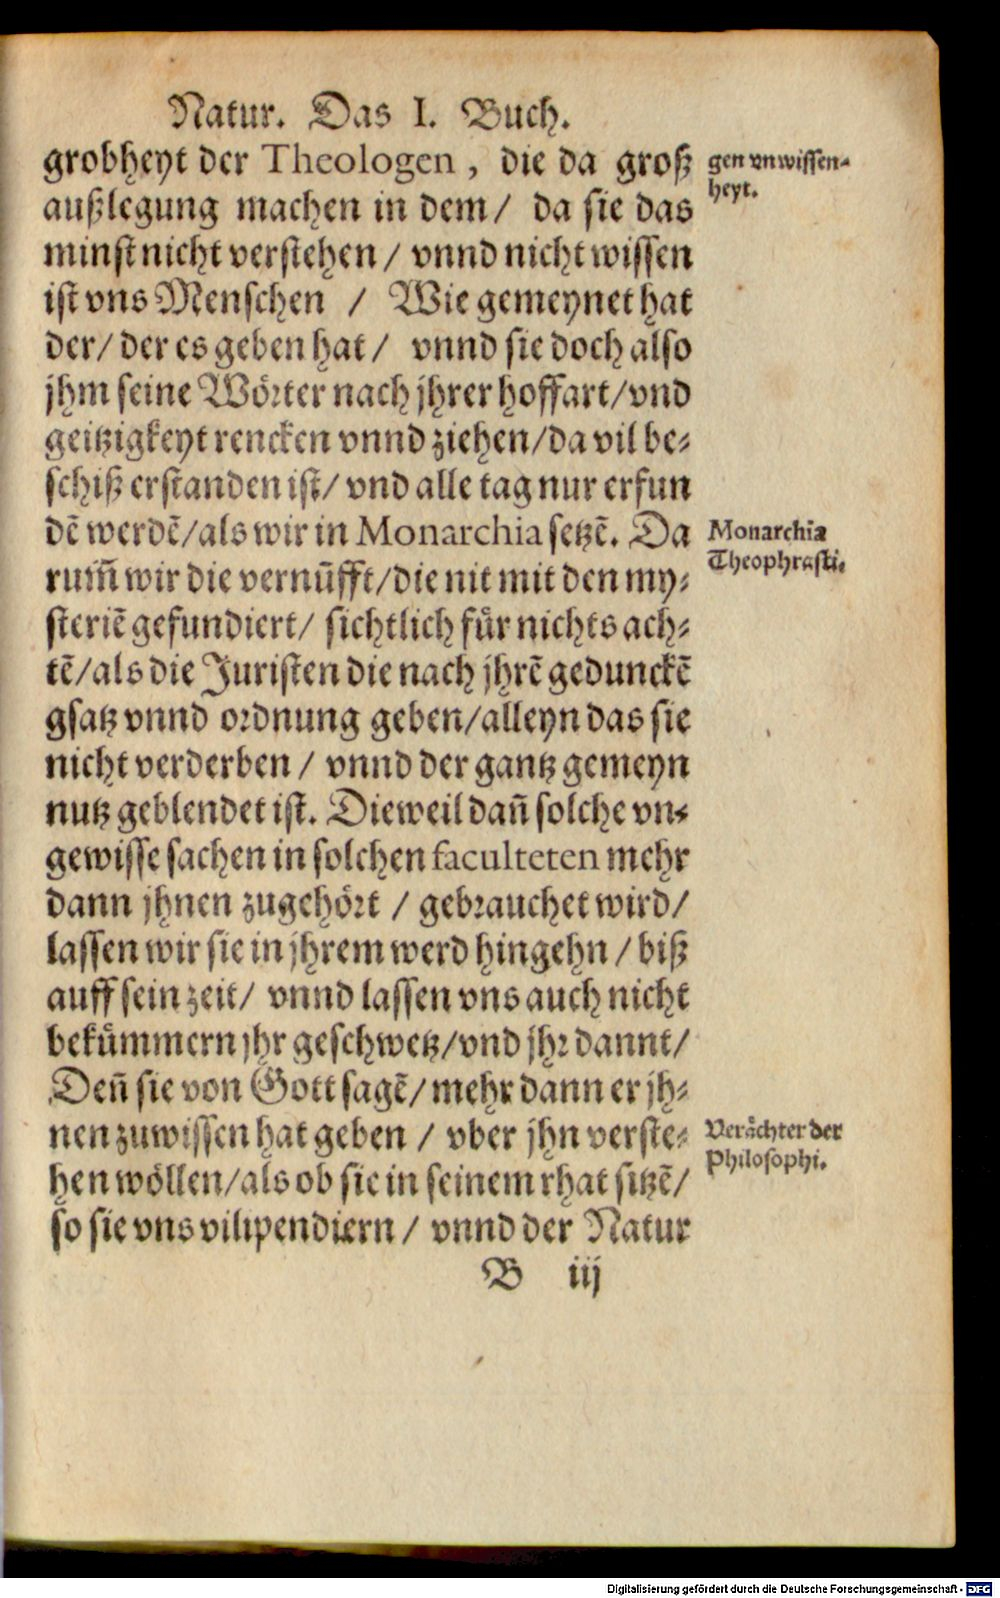 Natur. Das I. Buch.
grobheyt der Theologen, die da groß
gen vnwissen-
heyt.
außlegung machen in dem/ da sie das
minst nicht verstehen/ vnnd nicht wissen
ist vns Menschen / Wie gemeynet hat
der/ der es geben hat/ vnnd sie doch also
jhm seine Wörter nach jhrer hoffart/ vnd
geitzigkeyt rencken vnnd ziehen/ da vil be-
schiß erstanden ist/ vnd alle tag nur erfun
dē werdē/ als wir in Monarchia setzē. Da
Monarchia
Theophrasti.
rum̃ wir die vernūfft/ die nit mit den my-
steriē gefundiert/ sichtlich für nichts ach-
tē/ als die Juristen die nach jhrē geduncḱē
gsatz vnnd ordnung geben/ alleyn das sie
nicht verderben / vnnd der gantz gemeyn
nutz geblendet ist. Dieweil dañ solche vn-
gewisse sachen in solchen faculteten mehr
dann jhnen zugehört / gebrauchet wird/
lassen wir sie in jhrem werd hingehn / biß
auff sein zeit/ vnnd lassen vns auch nicht
bekümmern jhr geschwetz/ vnd jhr dannt/
Deñ sie von Gott sagē/ mehr dann er jh-
nen zuwissen hat geben / vber jhn verste-
Verächter der
Philosophi.
hen wöllen/ als ob sie in seinem rhat sitzē/
so sie vns vilipendiern / vnnd der Natur
B iij
Digitalisierung gefördert durch die Deutsche Forschungsgemeinschaft - DFG